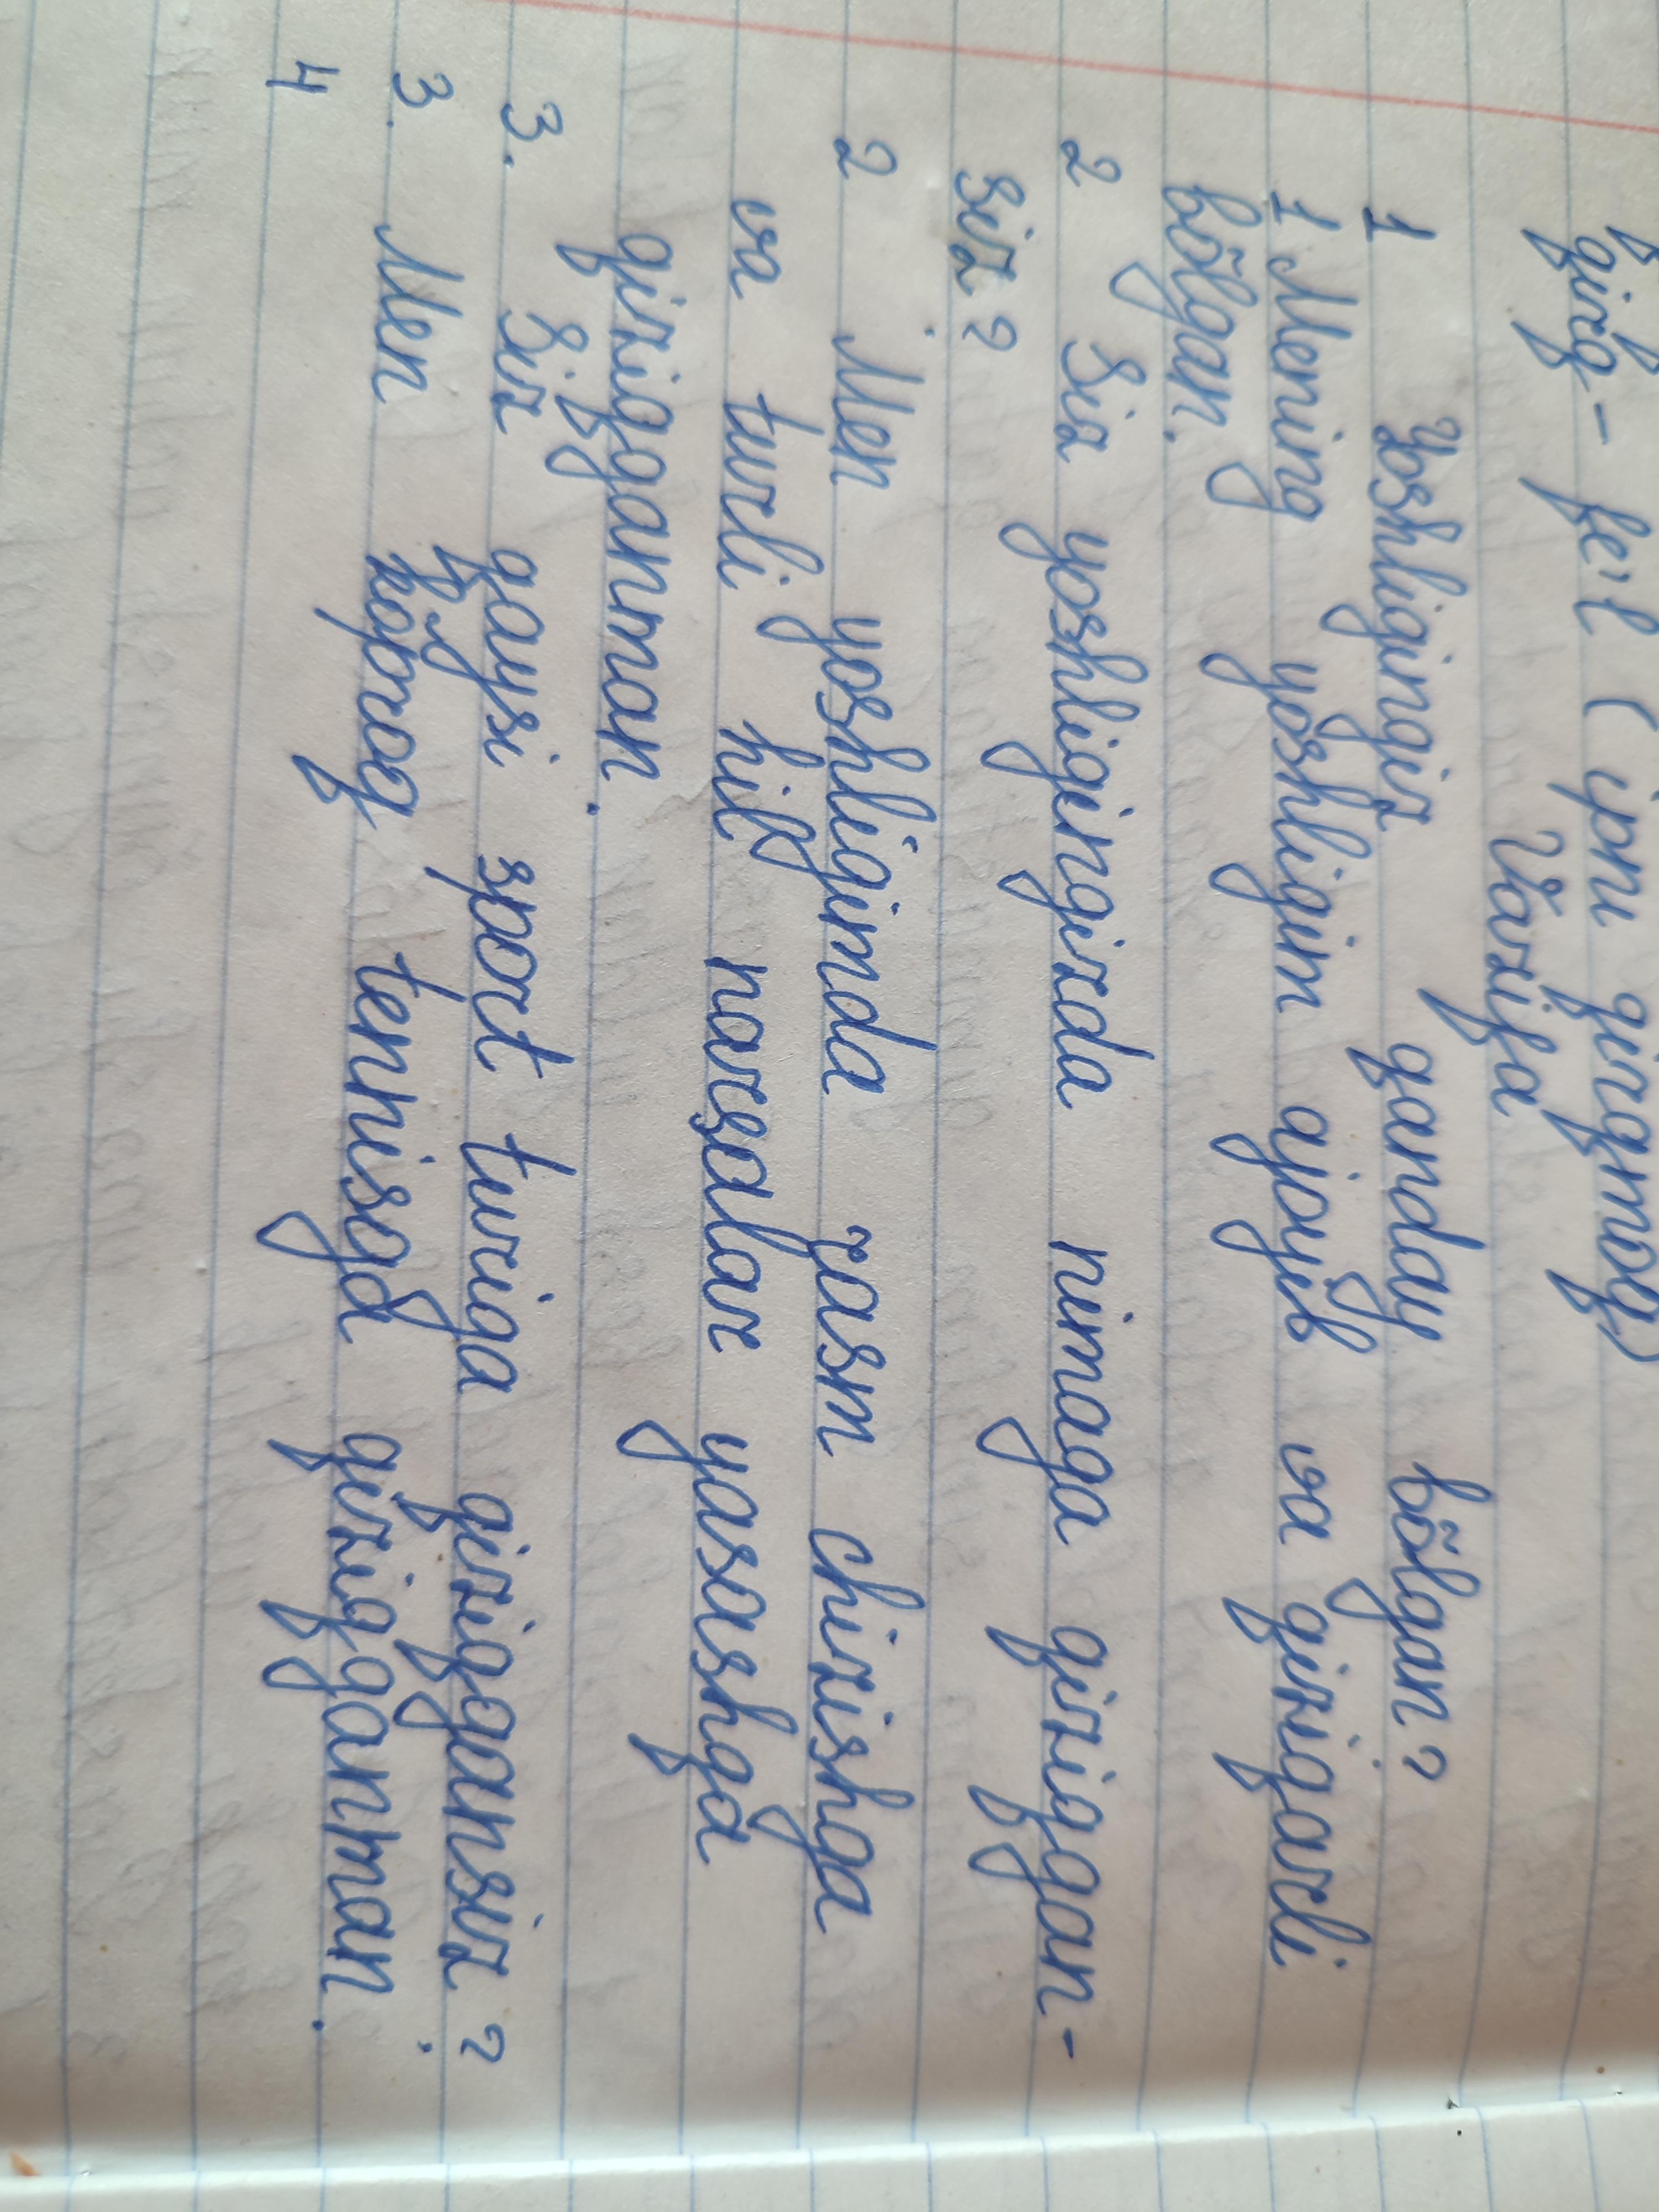 qirq - fe'l (ipni qirqmoq)
Vazifa
1 Yoshligingiz qanday bõlgan?
1 Mening yoshligim ajoyib va qiziqarli
bõlgan.
2 Siz yoshligingizda nimaga qiziqgan-
siz?
2 Men yoshligimda rasm chizishga
va turli hil narsalar yasashga
qiziqganman.
3. Siz qaysi sport turiga qiziqgansiz?
3. Men koproq tennisga qiziqganman.
4